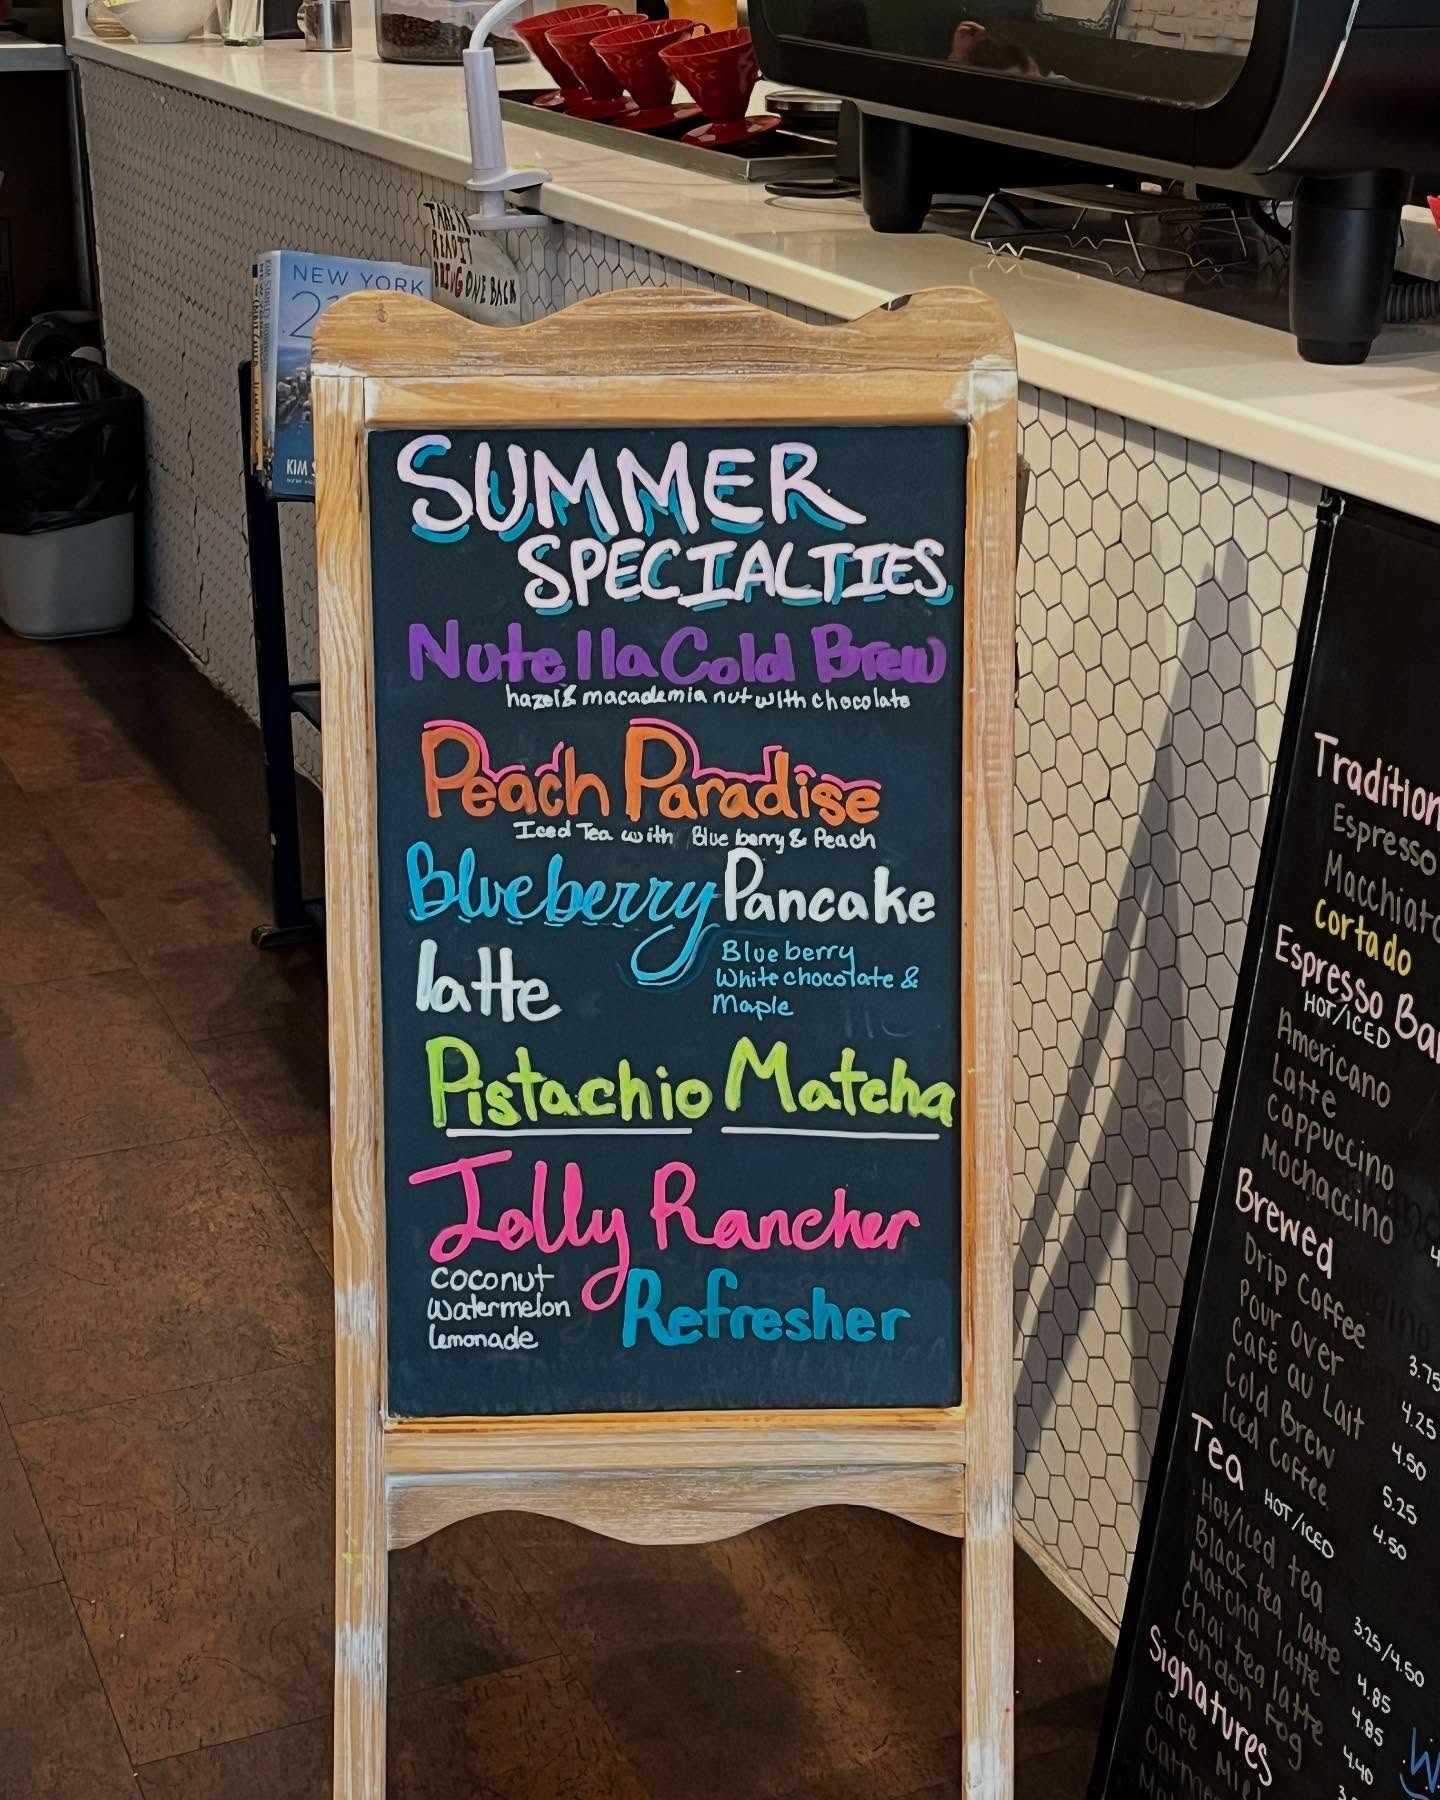 TAKE A
READ IT
BRING ONE BACK
NEW YORK
KIM STANLEY ROBINSON
KIM
SUMMER
SPECIALTIES
Nutella Cold Brew
hazel & macademia nut with chocolate
Peach Paradise
Iced Tea with Blueberry & Peach
Blueberry Pancake
latte
Blueberry
White chocolate &
Maple
Pistachio Matcha
Jolly Rancher
Refresher
coconut
watermelon
lemonade
Tradition
Espresso
Macchiato
Cortado
Espresso Bar
HOT/ICED
Americano
Latte
Cappuccino
Mochaccino
Brewed
Drip Coffee
Pour over 3.75
Café au Lait 4.25
Cold Brew 4.50
Iced Coffee 5.25
Tea HOT/ICED 4.50
Hot/Iced tea
Black tea latte 3.25/4.50
Matcha latte 4.85
Chai tea latte 4.85
London Fog 4.40
Signatures
Cafe Miel